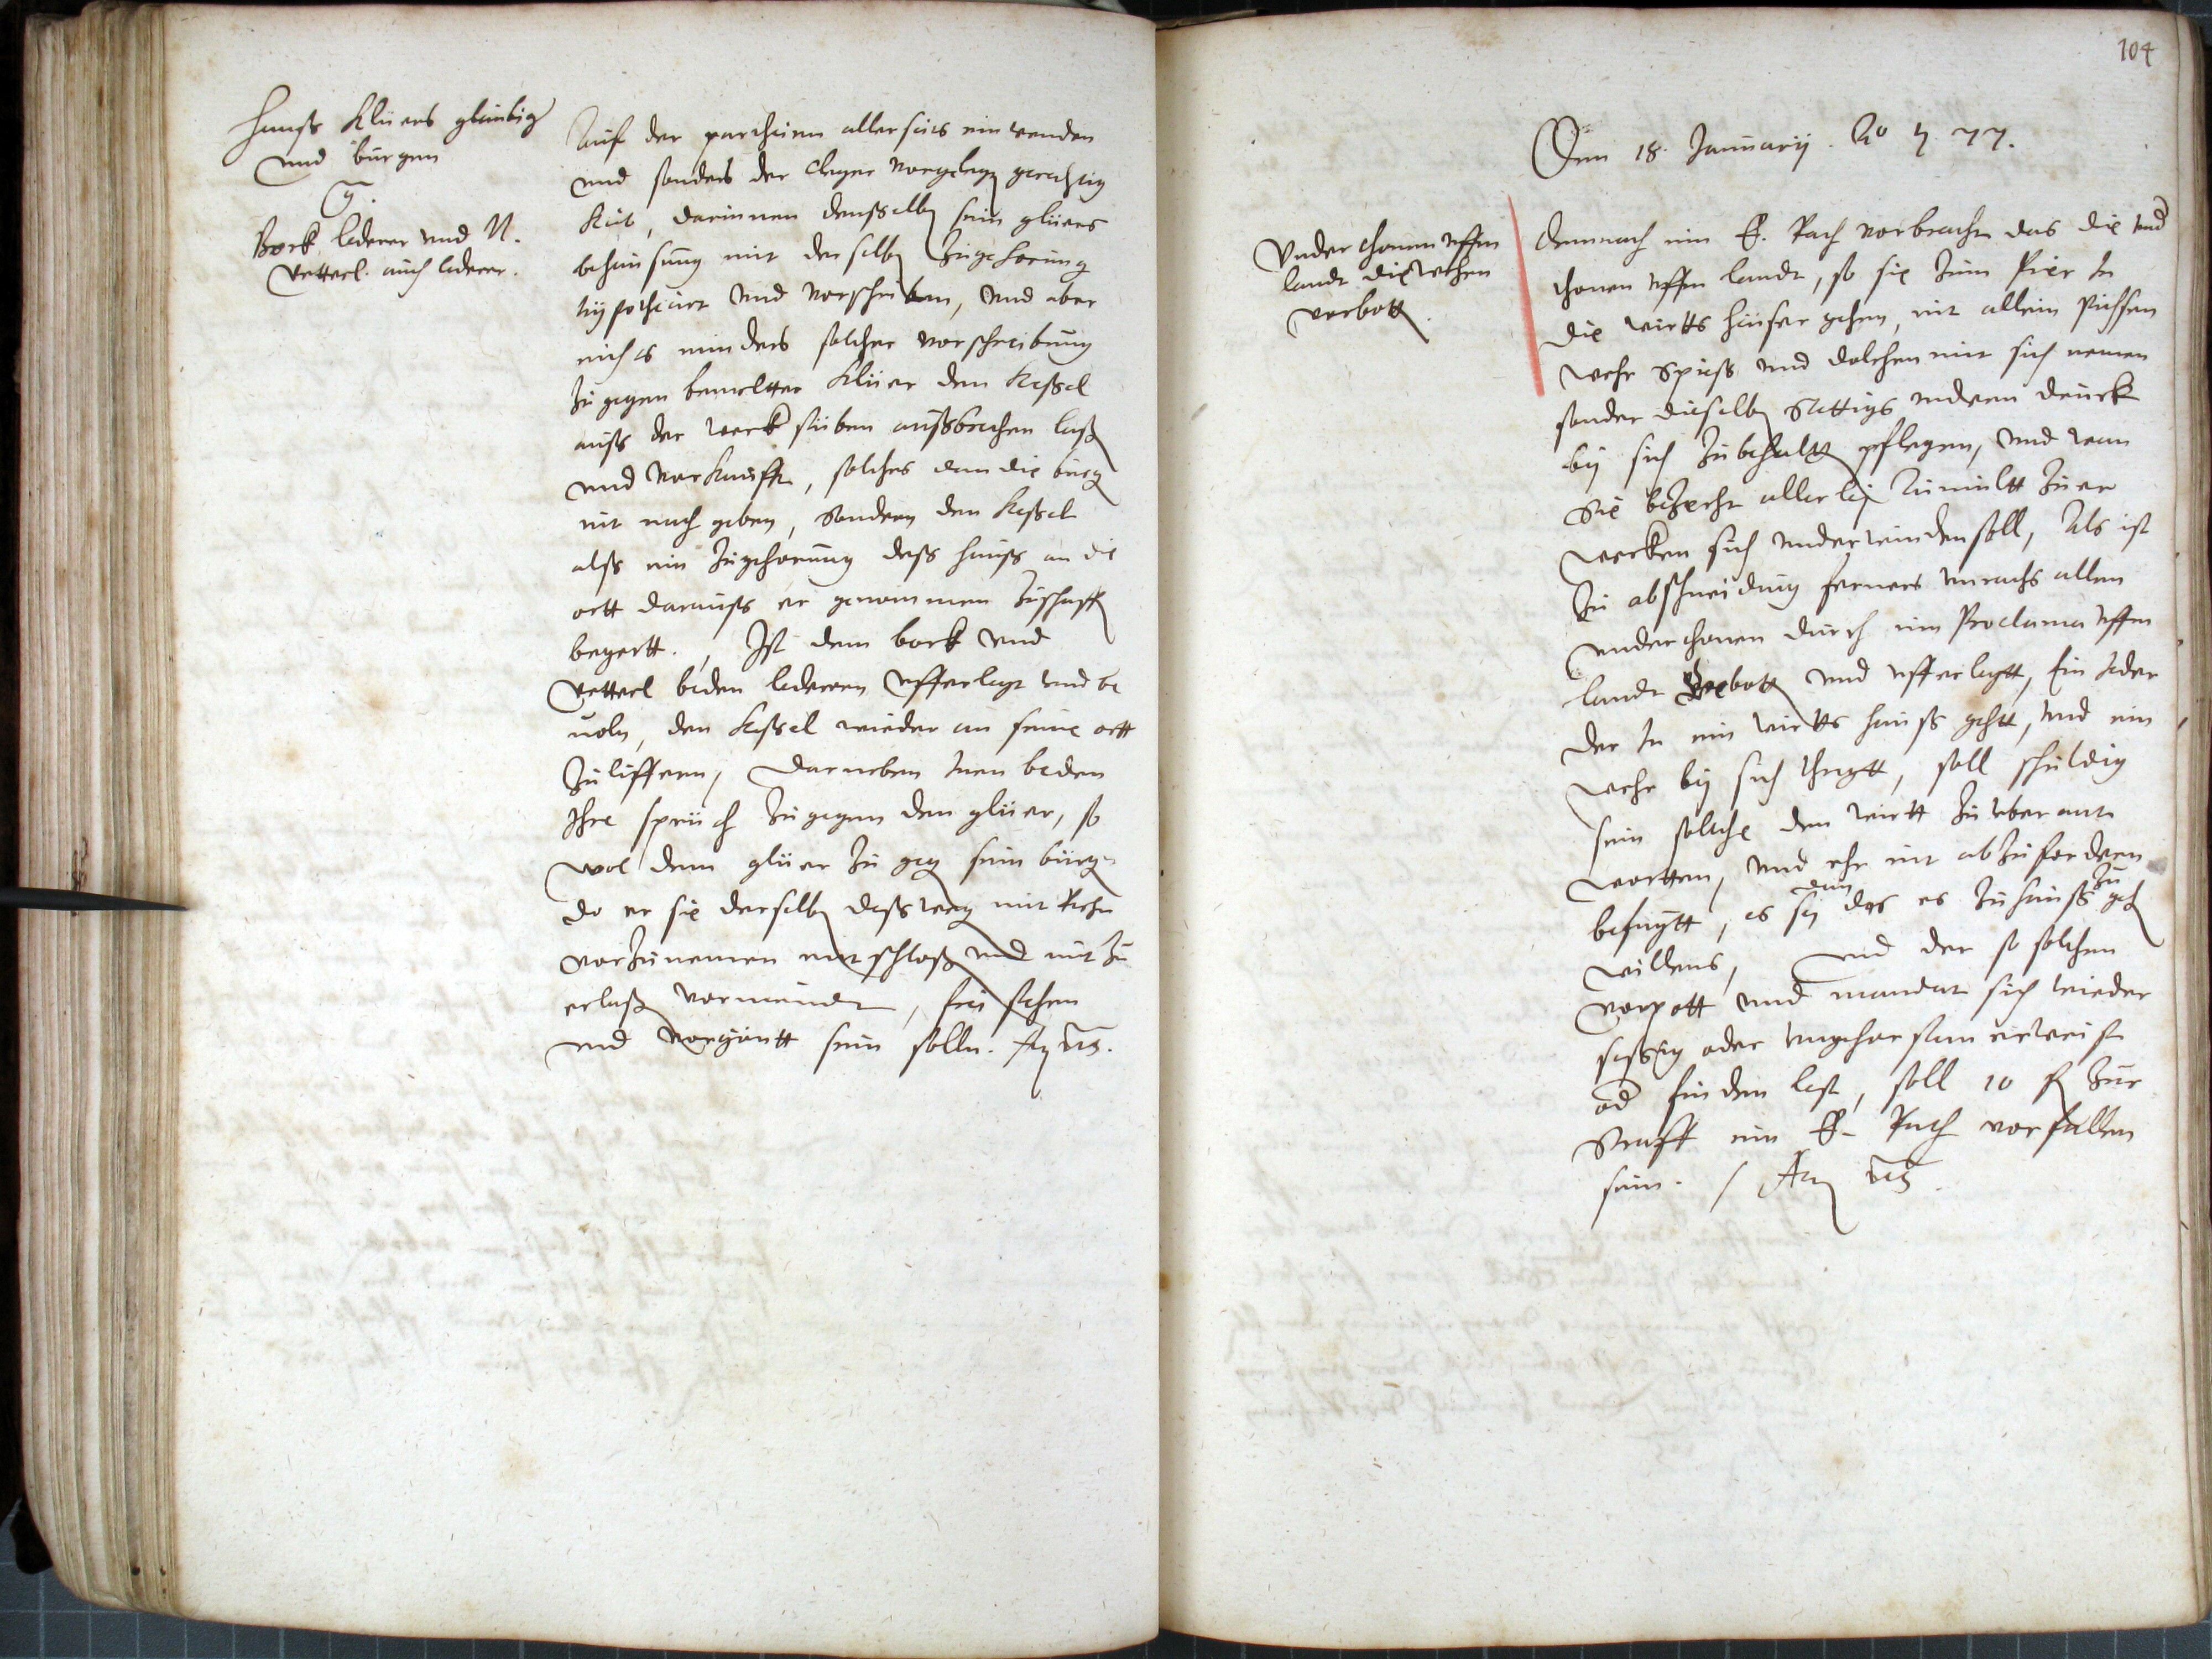 Hanß Klüers gleubig
und bürgen
Bork lederer und N.
Vetterl. auch lederer.
Auf der partheien allerseits einwenden
und sonders der cleger vorgelegt gerechtig
keit, darinnen denselben sein glüers
behausung mit derselben zugehorung
hypothicirt und vorschriben, und aber
nichts minders solcher vorschreibung
zu gegen bemeltter Klüer den Keßel
auß der werkstuben außbrechen laßen
und vorkaufft, solches dan die bürgen
nit nach geben, sondern den Keßel
alß ein zugehorung deß hauß an die
ortt darauß er genommen zuschaffen
begertt., Ist dem bork und
Vetterl beden lederern ufferlegt und be
uoln, den Keßel wieder an seine ortt
zu liffern, darneben inen beden
Ihre sprüch zu gegen den glüer, so
wol dem glüer zu gegen sein bürgen
do er sie derselben deßwegen mit Recht
vorzunemen entschloßen und nit zu
erlaßen vormeindt, frei stehen
und vorgöntt sein sollen.
104
Den 18. Januarij. Ao 77.
Underthonen uffm
landt die wehren
verbotten.
Demnach ein E. Rath vorbracht das die und
thonen uffm landt, so sie zum Pier in
die wirtts heuser gehen, nit allein Püchsen
wehr Spieß und dolchen mit sich nemen
sonder dieselben
bey sich zubehalten pflegen, und wan
sie bezecht allerley tumultt zu er
wecken sich understeen soll, Als ist
zu abschneidung ferners unraths allen
underthonen durch ein Proclama uffm
landt verbotten und ufferlegtt, Ein Jeder
der in ein wirtts hauß gehtt, und ein
wehr bey sich tregtt, soll schuldig
sein solche dem wirtt zu uberant
wortten, und ehr nit abzufordern
befuegtt, es sey dan das er zu hauß zu gehen
willens, und der so solchem
vorpott und mandat sich wieder
seßig oder ungehorsam erweist
od finden lest, soll 10 fl zur
Straff ein E. Rath vorfallen
sein.